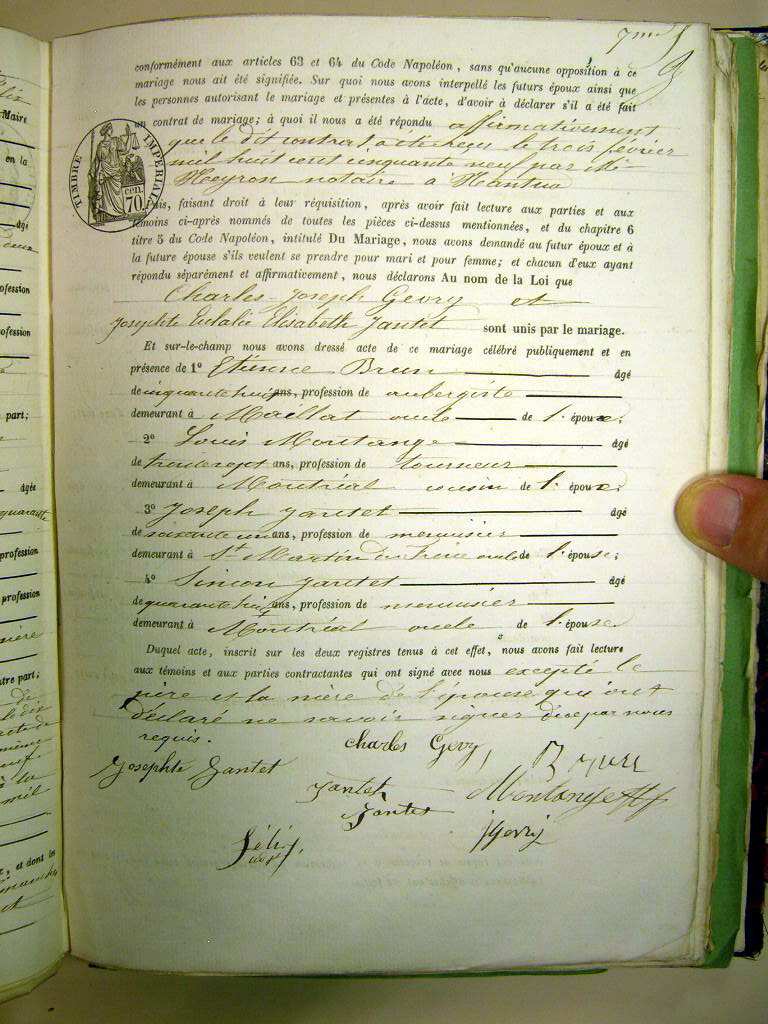 7me
conformément aux articles 63 et 64 du Code Napoléon, sans qu'aucune opposition à ce
mariage nous ait été signifiée. Sur quoi nous avons interpellé les futurs époux ainsi que
les personnes autorisant le mariage et présentes à l'acte, d'avoir à déclarer s'il a été fait
un contrat de mariage; à quoi il nous a été répondu affirmativement
que le dit contrat a été reçu le trois février
mil huit cent cinquante neuf par Me
Meyron notaire à Nantua
TIMBRE IMPÉRIAL
70 cen.
Puis, faisant droit à leur réquisition, après avoir fait lecture aux parties et aux
témoins ci-après nommés de toutes les pièces ci-dessus mentionnées, et du chapitre 6
titre 5 du Code Napoléon, intitulé Du Mariage, nous avons demandé au futur époux et à
la future épouse s'ils veulent se prendre pour mari et pour femme; et chacun d'eux ayant
répondu séparément et affirmativement, nous déclarons Au nom de la Loi que
Charles-Joseph Gevry et
Josephte Eulalie Elisabeth Jantet sont unis par le mariage.
Et sur-le-champ nous avons dressé acte de ce mariage célébré publiquement et en
présence de 1º Etienne Brun âgé
de cinquante huit ans, profession de aubergiste
demeurant à Maillat oncle de l'épouse;
2º Louis Montange âgé
de trente sept ans, profession de tourneur
demeurant à Montréal cousin de l'épouse;
3º Joseph Jantet âgé
de soixante un ans, profession de menuisier
demeurant à St Martin du Frene oncle de l'épouse;
4º Simon Jantet âgé
de quarante huit ans, profession de menuisier
demeurant à Montréal oncle de l'épouse
Duquel acte, inscrit sur les deux registres tenus à cet effet, nous avons fait lecture
aux témoins et aux parties contractantes qui ont signé avec nous excepté le
père et la mère de l'épouse qui ont
déclaré ne savoir signer de ce par nous
requis.
Charles Gevry Brun
Josephte Jantet Jantet Montange
Jantet
Félix JGevry